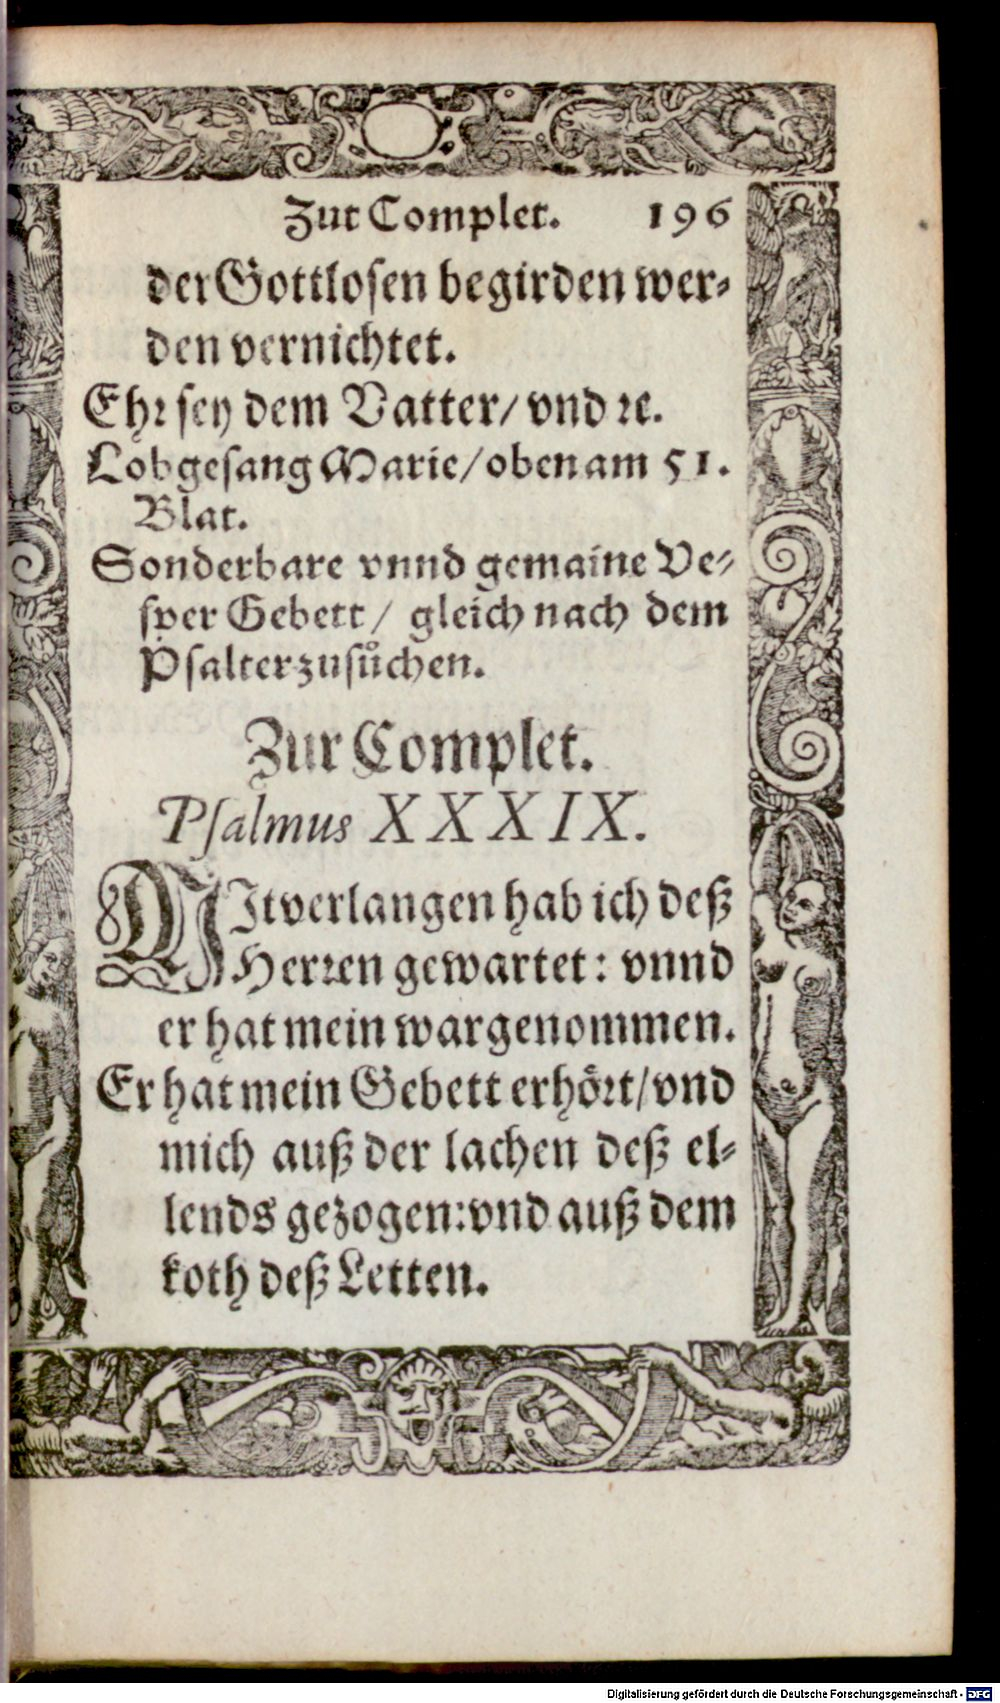 Zur Complet. 196
der Gottlosen begirden wer⸗
den vernichtet.
Ehr sey dem Vatter/ vnd ꝛc.
Lobgesang Marie/ oben am 51.
Blat.
Sonderbare vnnd gemaine Ve⸗
sper Gebett/ gleich nach dem
Psalter zusůchen.
Zur Complet.
Psalmus XXXIX.
MIt verlangen hab ich deß
Herren gewartet: vnnd
er hat mein war genommen.
Er hat mein Gebett erhört/ vnd
mich auß der lachen deß el⸗
lends gezogen: vnd auß dem
koth deß Letten.
Digitalisierung gefördert durch die Deutsche Forschungsgemeinschaft - DFG